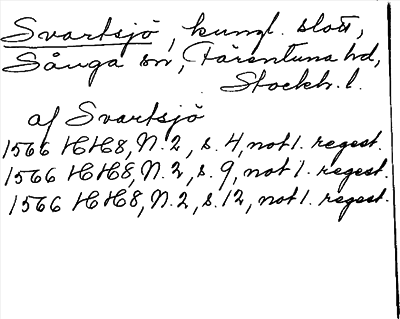 Svartsjö, kungl. slott,
Sånga sn, Färentuna hd,
Stockh. l.
af Svartsjö
1566 HH8, N. 2, s. 4, not 1. regest.
1566 HH8, N. 2, s. 9, not 1. regest.
1566 HH8, N. 2, s. 12, not 1. regest.